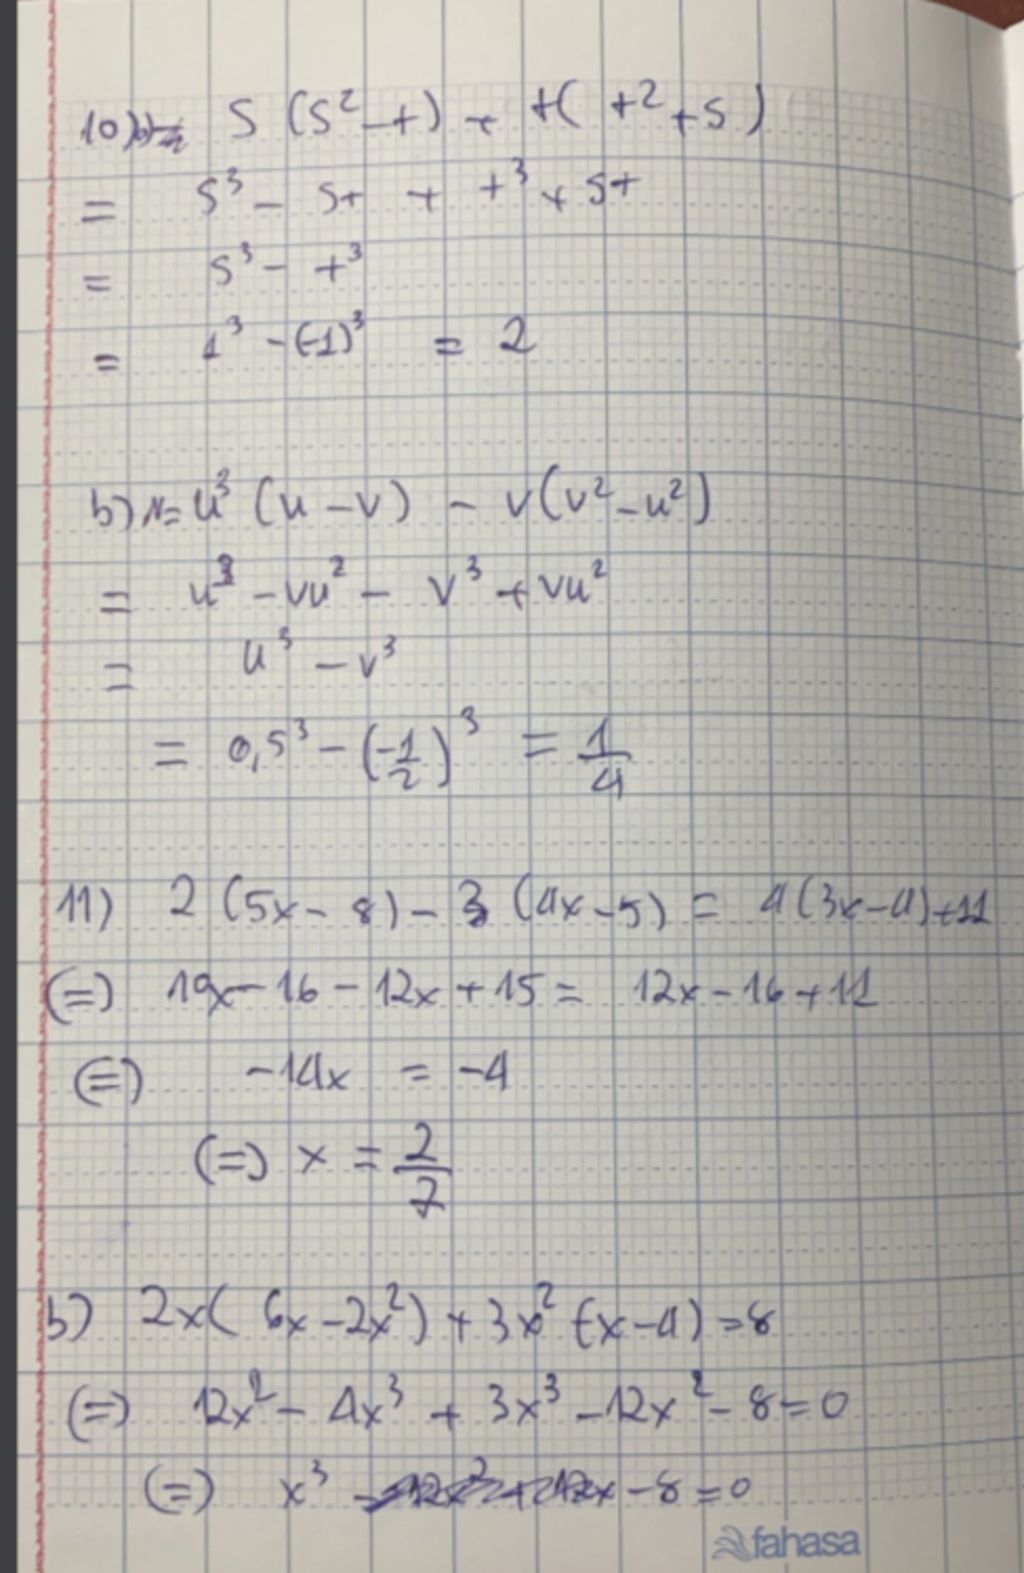 10) S (S² - t) + t( t² + s )
= s³ - st + t³ + st
= s³ - t³
= 1³ - (-1)³ = 2
b) N= u³ (u - v) - v(v² - u²)
= u³ - vu² - v³ + vu²
= u³ - v³
= 0,5³ - (-1/2)³ = 1/4
11) 2 (5x - 8) - 3 (4x - 5) = 4(3x - 4) + 11
(=) 10x - 16 - 12x + 15 = 12x - 16 + 11
(=) -14x = -4
(=) x = 2/7
b) 2x( 6x - 2x²) + 3x² (x - 4) = 8
(=) 12x² - 4x³ + 3x³ - 12x² - 8 = 0
(=) x³ - 8 = 0
fahasa